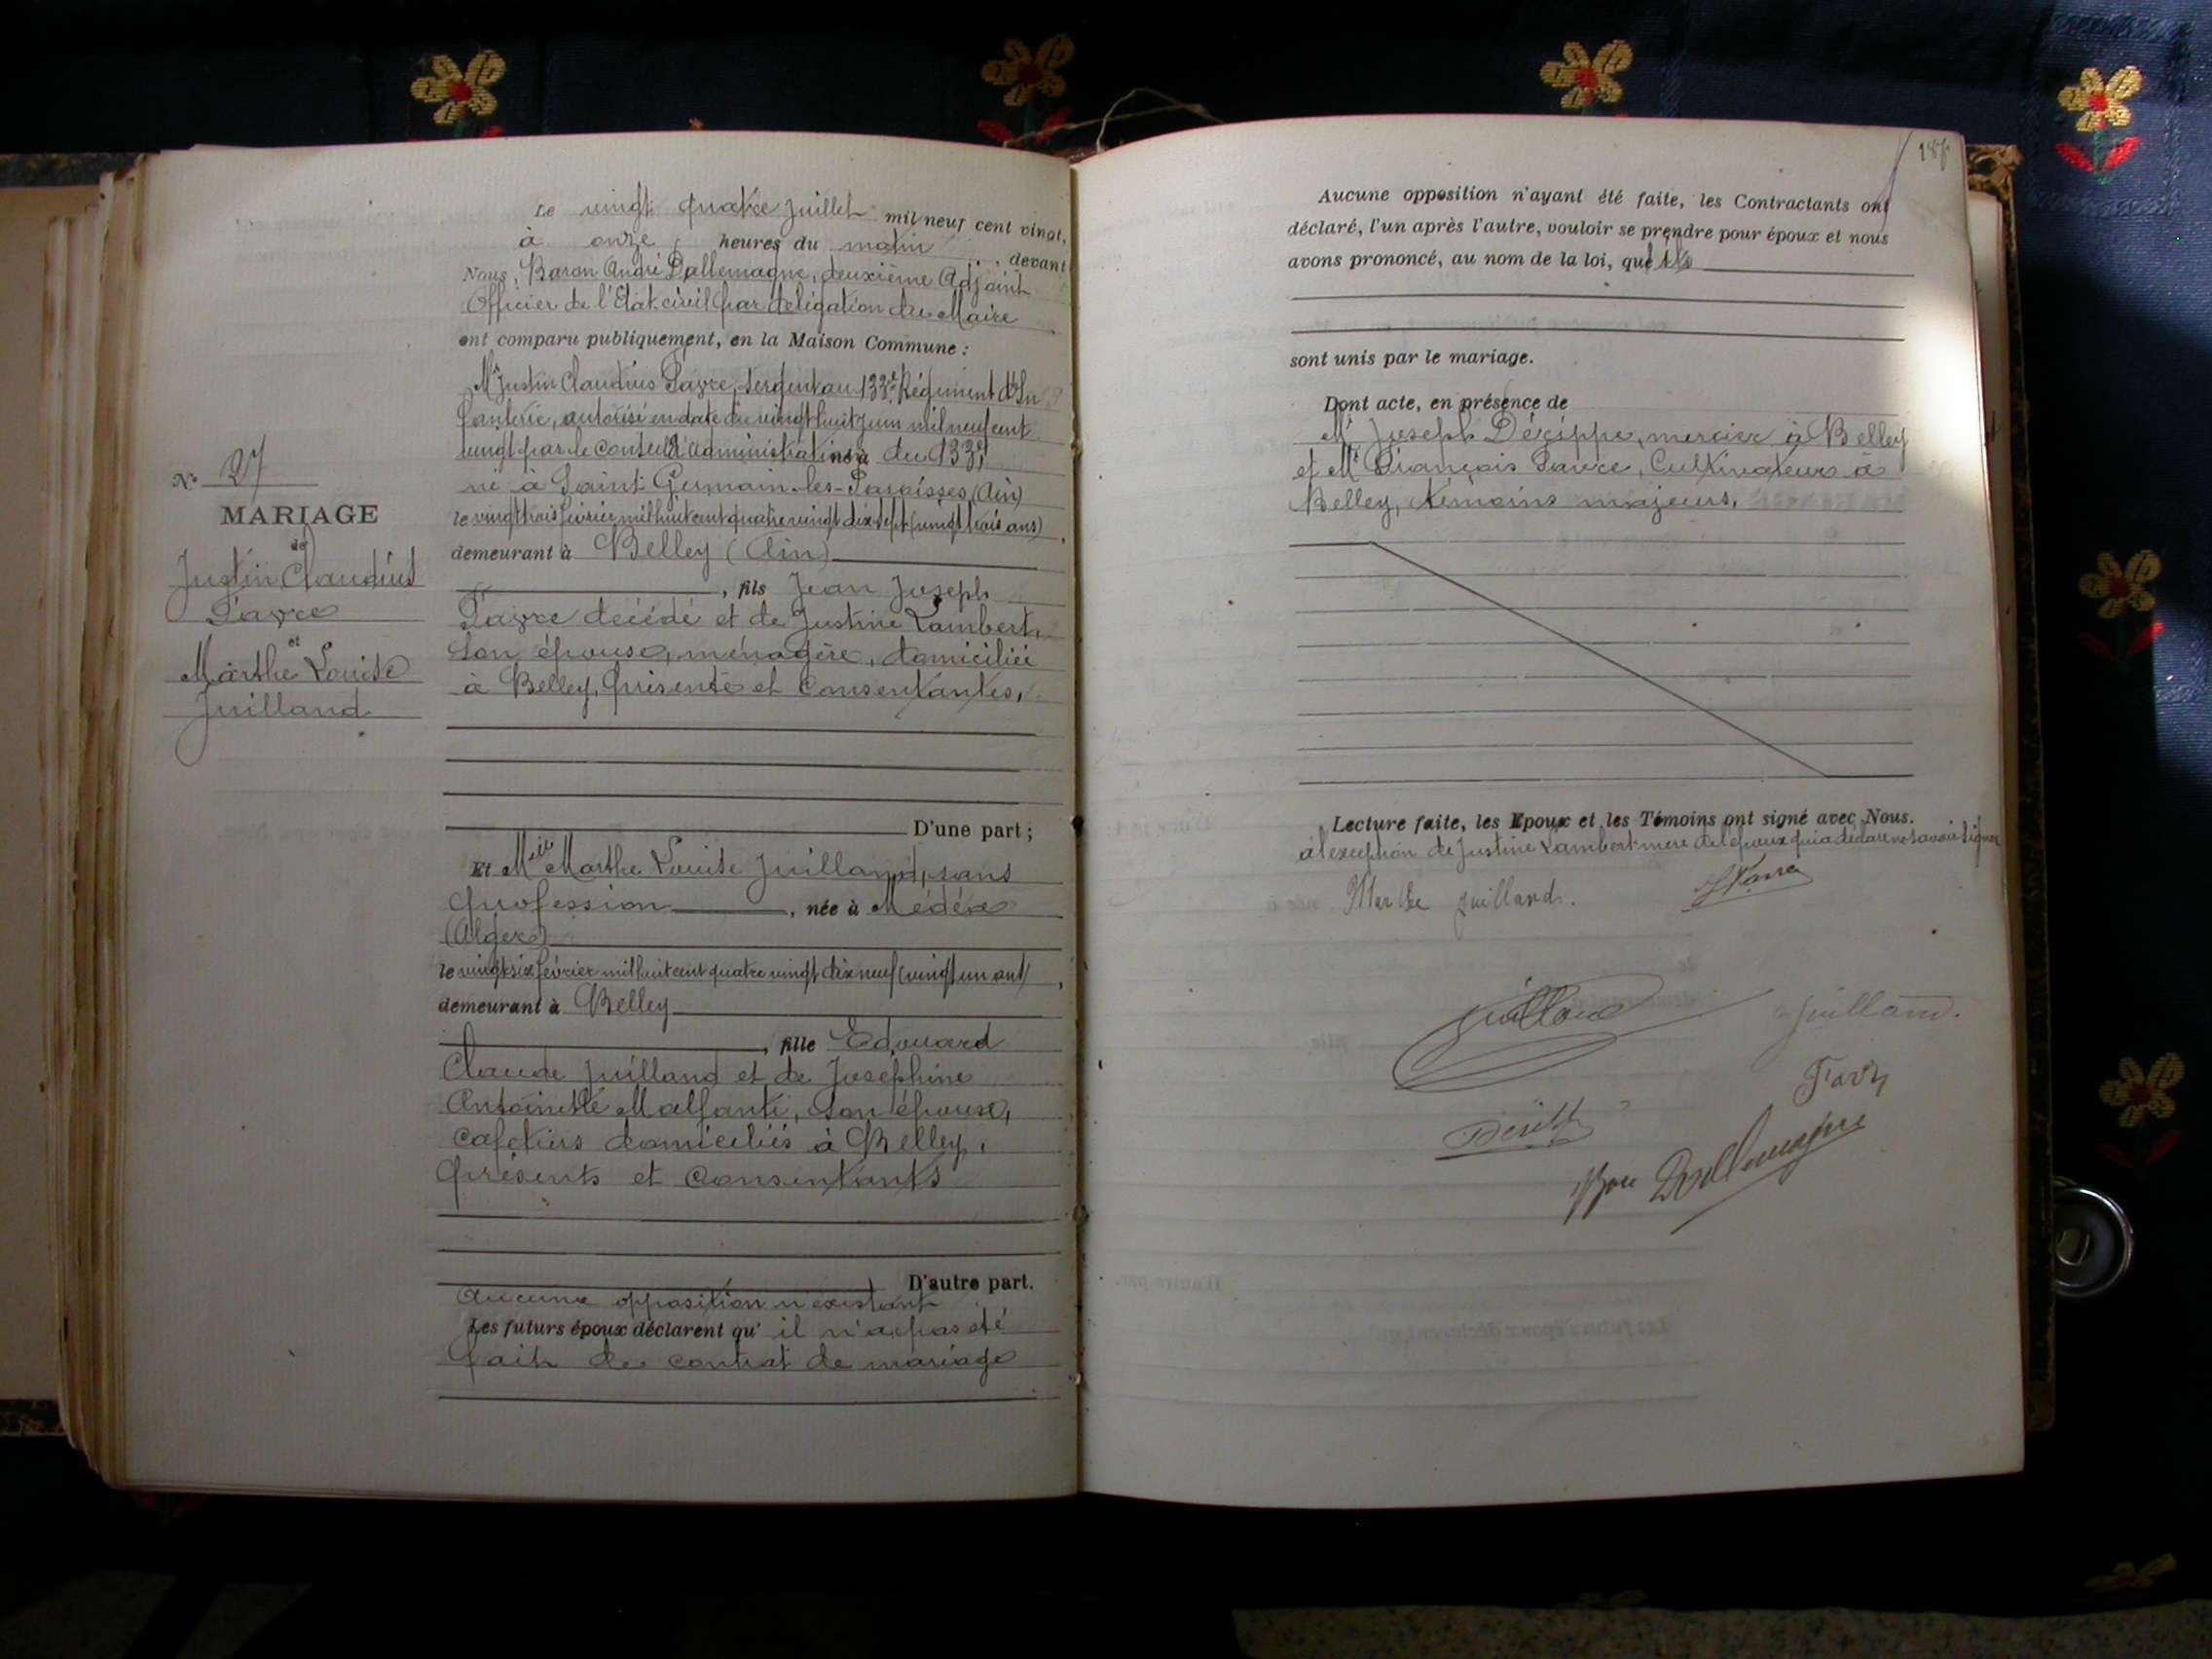 Le vingt quatre Juillet mil neuf cent vingt,
à onze heures du matin, devant
Nous, Baron André Dallemagne, deuxième Adjoint
Officier de l'Etat-civil par délégation du Maire
ont comparu publiquement, en la Maison Commune :
Mr Justin Claudius Favre, sergent au 133e Régiment d'In
fanterie, autorisé en date du vingt huit Juin mil neuf cent
vingt par le conseil d'administration du 133e,
né à Saint-Germain-les-Paroisses (Ain)
le vingt trois février mil huit cent quatre vingt dix-sept (vingt trois ans),
demeurant à Belley (Ain)
, fils Jean Joseph
Favre décédé et de Justine Lambert,
son épouse, ménagère, domiciliée
à Belley, présente et consentante,
D'une part ;
Et Melle Marthe Louise Juilland, sans
profession, née à Médéa
(Alger)
le vingt six février mil huit cent quatre vingt dix neuf (vingt un ans),
demeurant à Belley
, fille Edouard
Claude Juilland et de Josephine
Antoinette Malfanti, son épouse,
cafetiers domiciliés à Belley,
présents et consentants
D'autre part.
Aucune opposition n'existant
Les futurs époux déclarent qu'il n'a pas été
fait de contrat de mariage
N° 27
MARIAGE
de
Justin Claudius
Favre
et
Marthe Louise
Juilland
Aucune opposition n'ayant été faite, les Contractants ont
déclaré, l'un après l'autre, vouloir se prendre pour époux et nous
avons prononcé, au nom de la loi, qu'ils
sont unis par le mariage.
Dont acte, en présence de
Mr Joseph Déxippe, mercier à Belley
et Mr François Favre, Cultivateur à
Belley, témoins majeurs.
Lecture faite, les Epoux et les Témoins ont signé avec Nous.
à l'exception de Justine Lambert mère de l'époux qui a déclaré ne savoir signer
Marthe Juilland.
Favre
Juilland
Juilland.
Favre
Bon Dallemagne